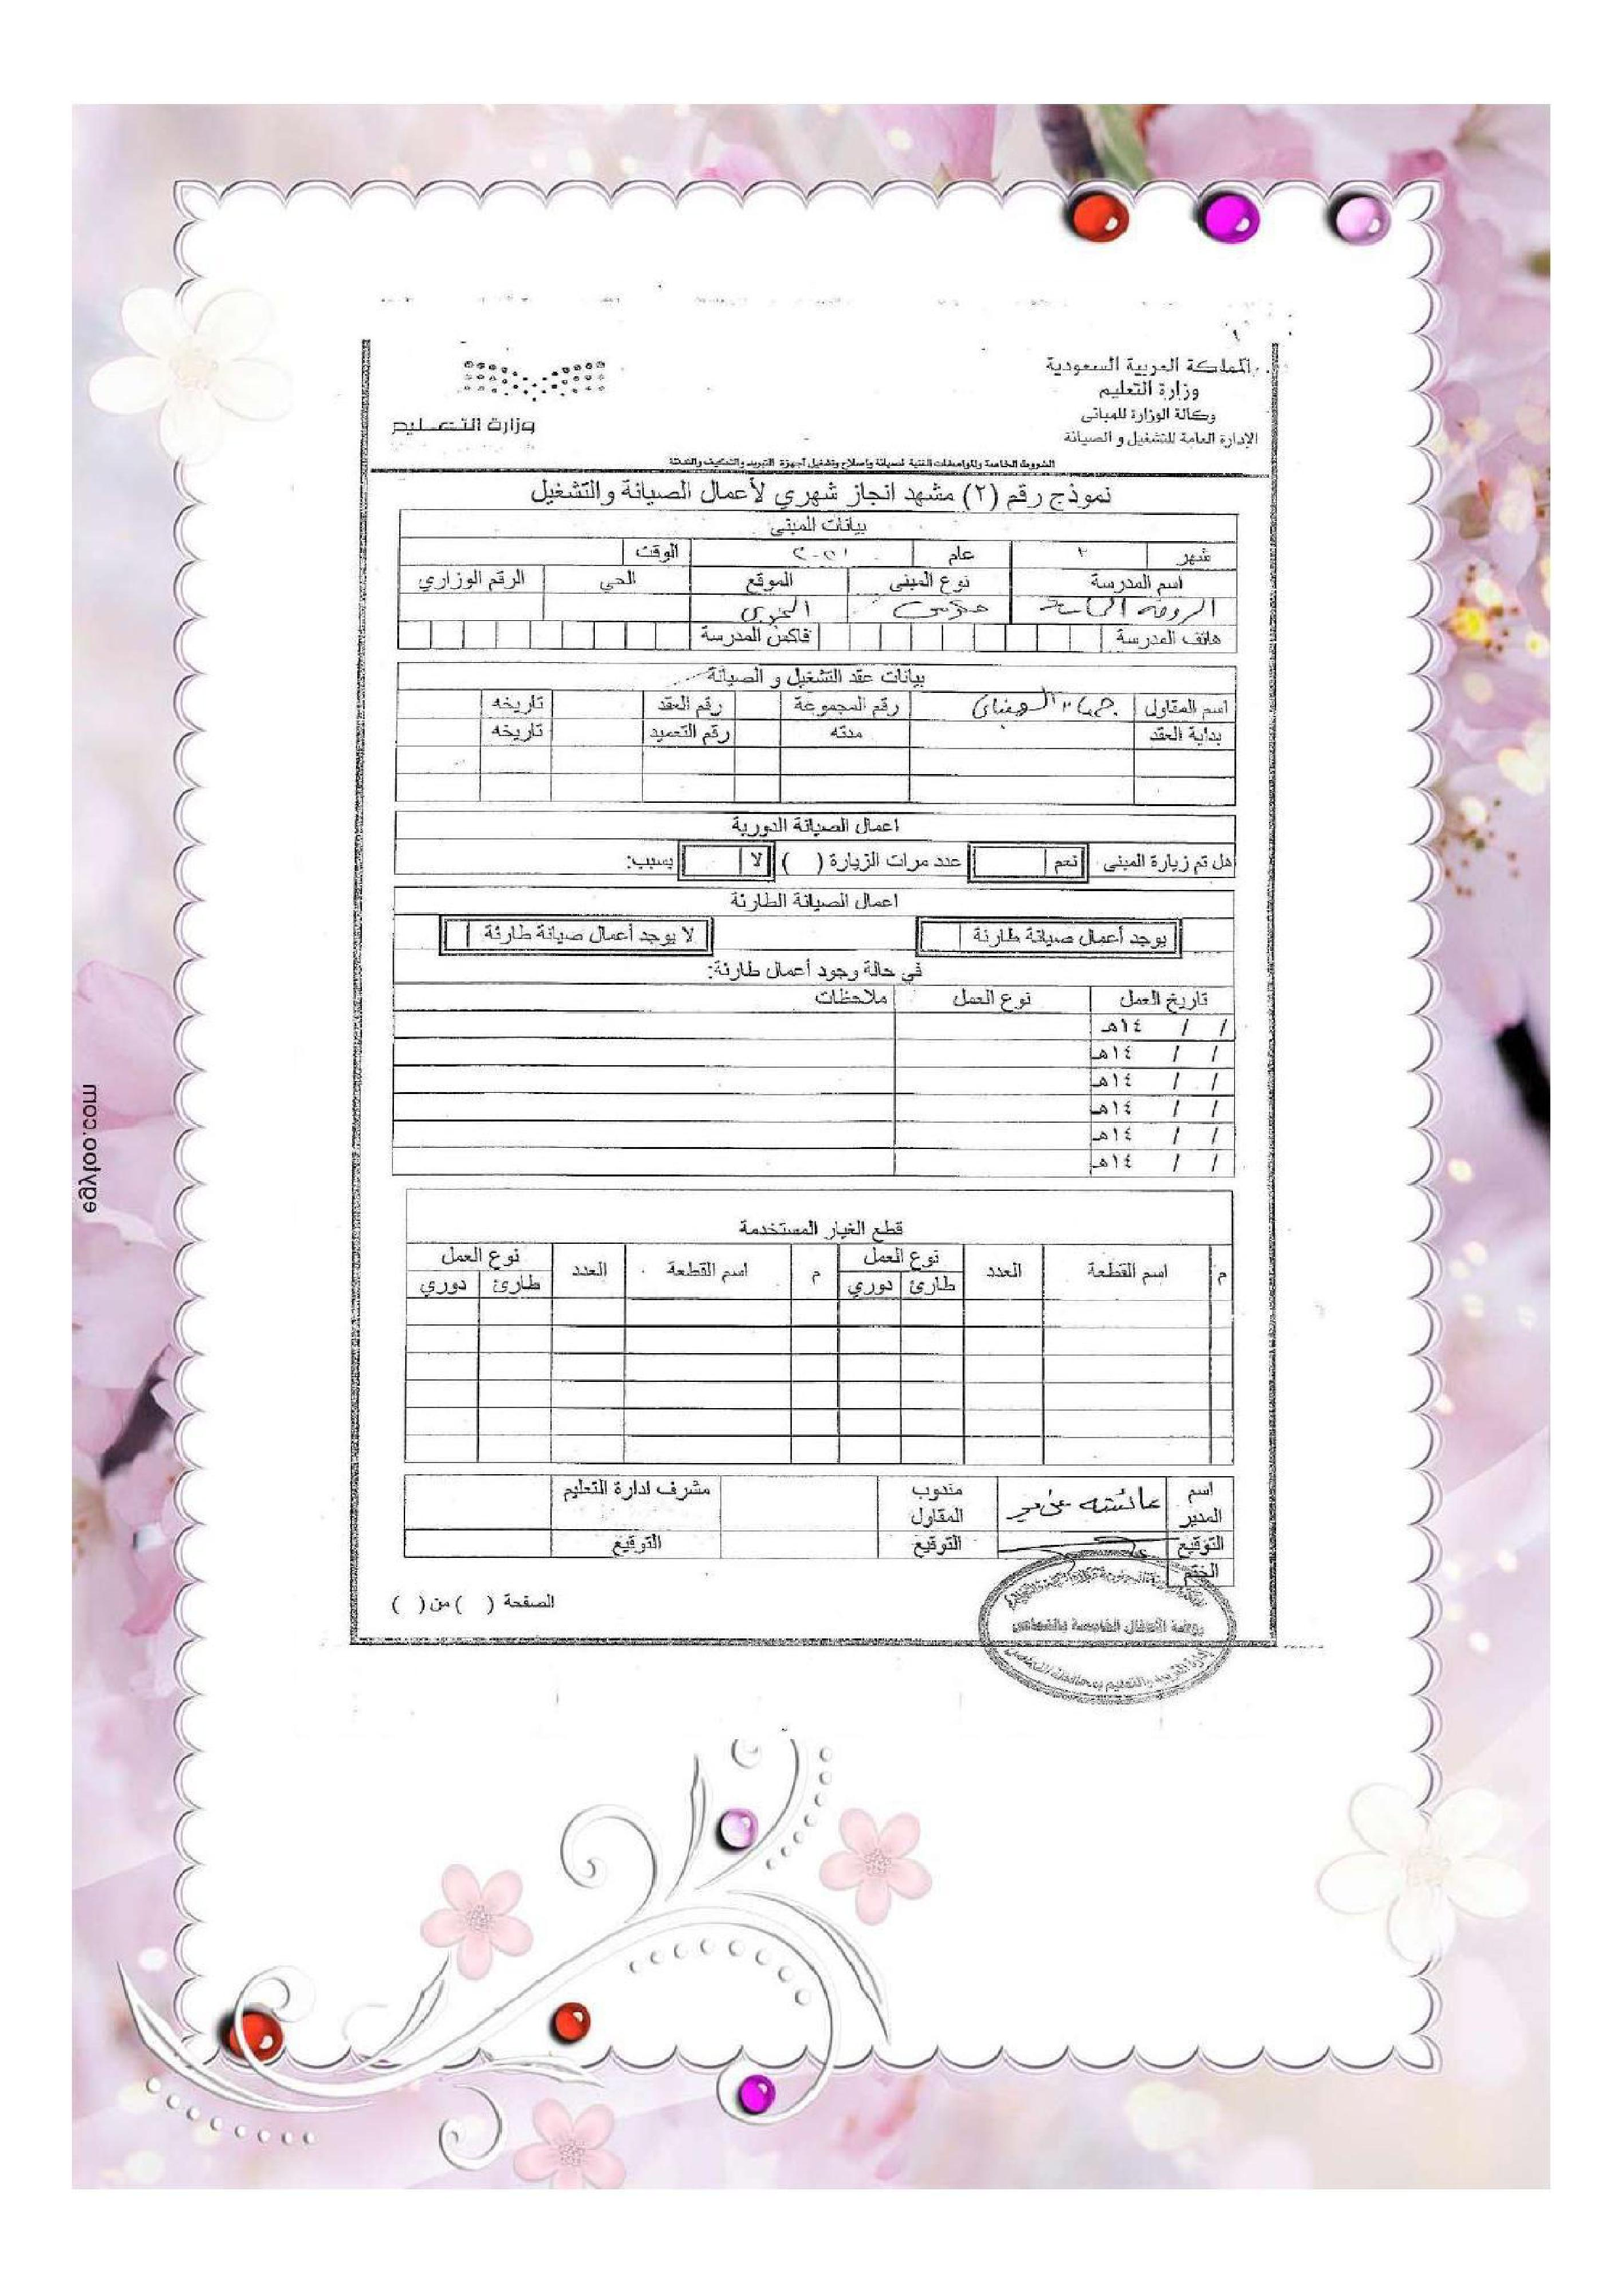 المملكة العربية السعودية
وزارة التعليم
وكالة الوزارة للمباني
الإدارة العامة للتشغيل و الصيانة
وزارة التعليم
الشروط الخاصة والمواصفات الفنية لصيانة وإصلاح وتشغيل أجهزة التبريد والتكييف والتدفئة
نموذج رقم (٢) مشهد انجاز شهري لأعمال الصيانة والتشغيل
بيانات المبنى
شهر ٢ عام الوقت
اسم المدرسة نوع المبنى الموقع الحي الرقم الوزاري
الروضة
هاتف المدرسة فاكس المدرسة
بيانات عقد التشغيل و الصيانة
اسم المقاول رقم المجموعة رقم العقد تاريخه
بداية العقد مدته رقم التعميد تاريخه
اعمال الصيانة الدورية
هل تم زيارة المبنى نعم عدد مرات الزيارة ( ) لا بسبب:
اعمال الصيانة الطارئة
يوجد أعمال صيانة طارئة لا يوجد أعمال صيانة طارئة
في حالة وجود أعمال طارئة:
تاريخ العمل نوع العمل ملاحظات
/ / ١٤هـ
/ / ١٤هـ
/ / ١٤هـ
/ / ١٤هـ
/ / ١٤هـ
/ / ١٤هـ
قطع الغيار المستخدمة
م اسم القطعة العدد نوع العمل م اسم القطعة العدد نوع العمل
طارئ دوري طارئ دوري
اسم المدير عائشه مندوب المقاول مشرف ادارة التعليم
التوقيع التوقيع التوقيع
الختم
الصفحة ( ) من ( )
روضة الأطفال الخامسة بالنماص
egyfoo.com